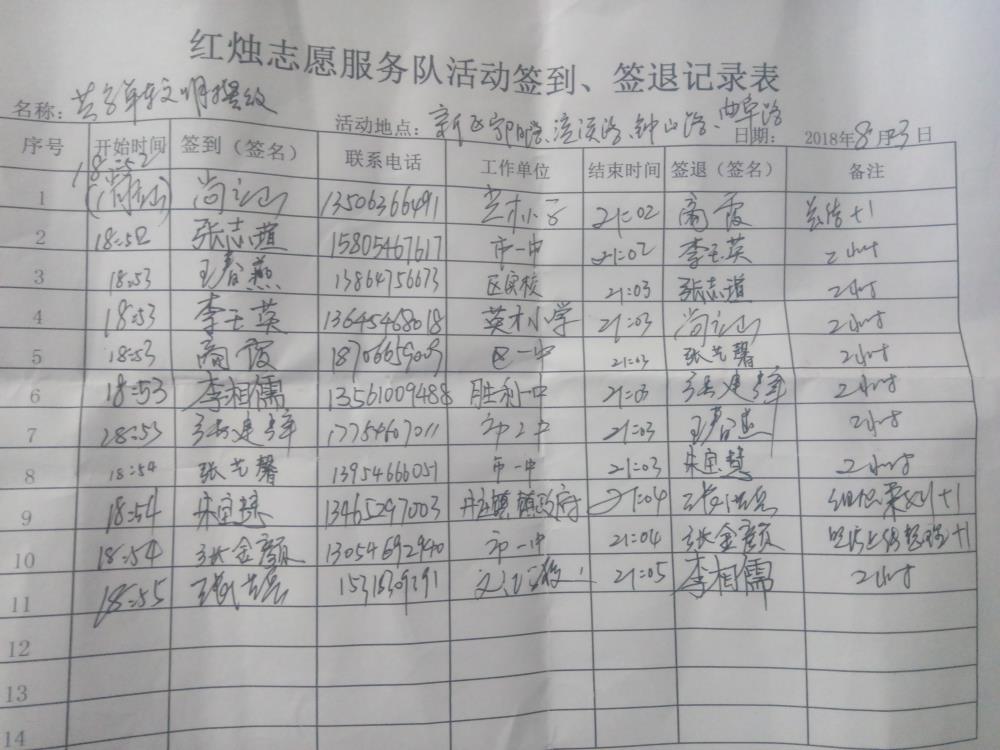 红烛志愿服务队活动签到、签退记录表
名称: 共享单车文明摆放
活动地点: 新区 路、 路、钟山路、曲阜路 日期: 2018年8月3日
序号 开始时间 签到（签名） 联系电话 工作单位 结束时间 签退（签名） 备注
1 18:52 尚立山 13506366491 英才小学 21:02 商霞 +1
2 18:52 张志道 15805467617 市一中 21:02 李玉英 2小时
3 18:53 王春燕 13864756673 区实校 21:03 张志道 2小时
4 18:53 李玉英 13645468018 英才小学 21:03 尚立山 2小时
5 18:53 商霞 区一中 21:03 张艺馨 2小时
6 18:53 李相儒 13561009488 胜利一中 21:03 2小时
7 28:53 17754607011 市二中 21:03 王春燕 2小时
8 18:54 张艺馨 13954666051 市一中 21:03 宋宝慧 2小时
9 18:54 宋宝慧 13465297003 镇政府 21:04 +1
10 18:54 张金颜 13054692940 市一中 21:04 张金颜 +1
11 18:55 21:05 李相儒 2小时
12
13
14